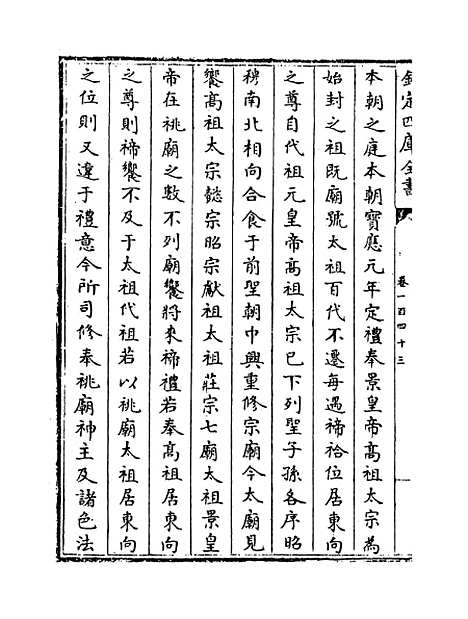 欽定四庫全書
卷一百四十三
本朝之庭本朝寶應元年定禮奉景皇帝高祖太宗為
始封之祖既廟號太祖百代不遷每遇禘祫位居東向
之尊自代祖元皇帝高祖太宗已下列聖子孫各序昭
穆南北相向合食于前聖朝中興重修宗廟今太廟見
饗高祖太宗懿宗昭宗獻祖太祖莊宗七廟太祖景皇
帝在祧廟之數不列廟饗將來禘禮若奉高祖居東向
之尊則禘饗不及于太祖代祖若以祧廟太祖居東向
之位則又違于禮意今所司修奉祧廟神主及諸色法